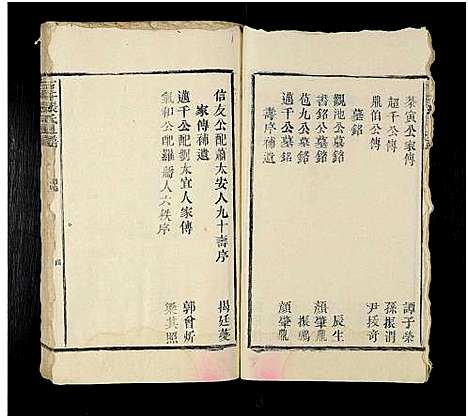 蓁寅公家傳 譚子榮
超千公家傳 孫振渭
胤伯公傳 尹拔奇
墓銘
觀池公墓銘 辰生
書銘公墓銘 顏肇鼎
苞九公墓銘 振鵬
邁千公墓銘 顏肇鼎
壽序補遺
信友公配蕭太安人九十壽序 揭廷蔓
家傳補遺
邁千公配劉太宜人家傳 郭曾炘
氣和公配羅孺人六秩序 梁其照